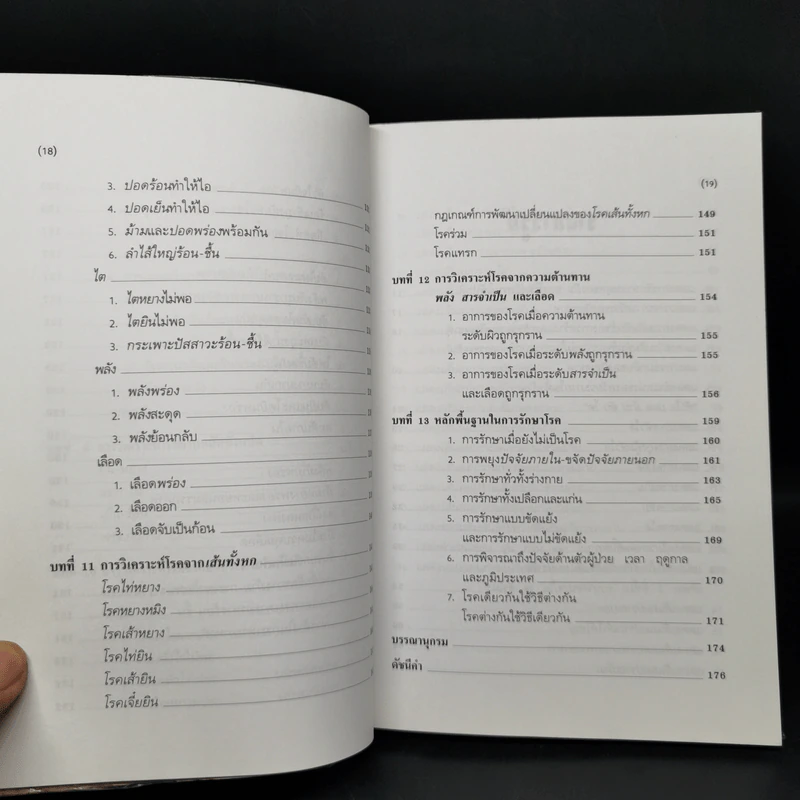 (18)
3. ปอดร้อนทำให้ไอ
4. ปอดเย็นทำให้ไอ
5. ม้ามและปอดพร่องพร้อมกัน
6. ลำไส้ใหญ่ร้อน-ชื้น
ไต
1. ไตหยางไม่พอ
2. ไตยินไม่พอ
3. กระเพาะปัสสาวะร้อน-ชื้น
พลัง
1. พลังพร่อง
2. พลังสะดุด
3. พลังย้อนกลับ
เลือด
1. เลือดพร่อง
2. เลือดออก
3. เลือดจับเป็นก้อน
บทที่ 11 การวิเคราะห์โรคจากเส้นทั้งหก
โรคไท่หยาง
โรคหยางหมิง
โรคเส้าหยาง
โรคไท่ยิน
โรคเส้ายิน
โรคเจี๋ยยิน
(19)
กฎเกณฑ์การพัฒนาเปลี่ยนแปลงของโรคเส้นทั้งหก 149
โรคร่วม 151
โรคแทรก 151
บทที่ 12 การวิเคราะห์โรคจากความต้านทาน
พลัง สารจำเป็น และเลือด 154
1. อาการของโรคเมื่อความต้านทาน
ระดับผิวถูกรุกราน 155
2. อาการของโรคเมื่อระดับพลังถูกรุกราน 155
3. อาการของโรคเมื่อระดับสารจำเป็น
และเลือดถูกรุกราน 156
บทที่ 13 หลักพื้นฐานในการรักษาโรค 159
1. การรักษาเมื่อยังไม่เป็นโรค 160
2. การพยุงปัจจัยภายใน-ขจัดปัจจัยภายนอก 161
3. การรักษาทั่วทั้งร่างกาย 163
4. การรักษาทั้งเปลือกและแก่น 165
5. การรักษาแบบขัดแย้ง
และการรักษาแบบไม่ขัดแย้ง 169
6. การพิจารณาถึงปัจจัยด้านตัวผู้ป่วย เวลา ฤดูกาล
และภูมิประเทศ 170
7. โรคเดียวกันใช้วิธีต่างกัน
โรคต่างกันใช้วิธีเดียวกัน 171
บรรณานุกรม 174
ดัชนีคำ 176